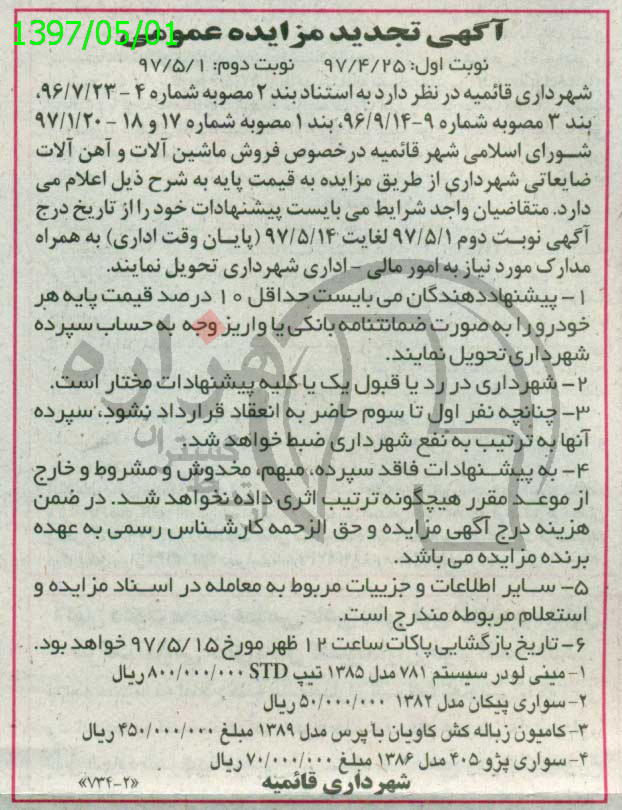 1397/05/01
آگهی تجدید مزایده عمومی
نوبت اول: ۹۷/۴/۲۵ نوبت دوم: ۹۷/۵/۱
شهرداری قائمیه در نظر دارد به استناد بند ۲ مصوبه شماره ۴ - ۹۶/۷/۲۳،
بند ۳ مصوبه شماره ۹-۹۶/۹/۱۴، بند ۱ مصوبه شماره ۱۷ و ۱۸ - ۹۷/۱/۲۰
شورای اسلامی شهر قائمیه درخصوص فروش ماشین آلات و آهن آلات
ضایعاتی شهرداری از طریق مزایده به قیمت پایه به شرح ذیل اعلام می
دارد. متقاضیان واجد شرایط می بایست پیشنهادات خود را از تاریخ درج
آگهی نوبت دوم ۹۷/۵/۱ لغایت ۹۷/۵/۱۴ (پایان وقت اداری) به همراه
مدارک مورد نیاز به امور مالی - اداری شهرداری تحویل نمایند.
۱- پیشنهاددهندگان می بایست حداقل ۱۰ درصد قیمت پایه هر
خودرو را به صورت ضمانتنامه بانکی یا واریز وجه به حساب سپرده
شهرداری تحویل نمایند.
۲- شهرداری در رد یا قبول یک یا کلیه پیشنهادات مختار است.
۳- چنانچه نفر اول تا سوم حاضر به انعقاد قرارداد نشود، سپرده
آنها به ترتیب به نفع شهرداری ضبط خواهد شد.
۴- به پیشنهادات فاقد سپرده، مبهم، مخدوش و مشروط و خارج
از موعد مقرر هیچگونه ترتیب اثری داده نخواهد شد. در ضمن
هزینه درج آگهی مزایده و حق الزحمه کارشناس رسمی به عهده
برنده مزایده می باشد.
۵- سایر اطلاعات و جزییات مربوط به معامله در اسناد مزایده و
استعلام مربوطه مندرج است.
۶- تاریخ بازگشایی پاکات ساعت ۱۲ ظهر مورخ ۹۷/۵/۱۵ خواهد بود.
۱- مینی لودر سیستم ۷۸۱ مدل ۱۳۸۵ تیپ STD ۸۰۰/۰۰۰/۰۰۰ ریال
۲- سواری پیکان مدل ۱۳۸۲ ۵۰/۰۰۰/۰۰۰ ریال
۳- کامیون زباله کش کاویان با پرس مدل ۱۳۸۹ مبلغ ۴۵۰/۰۰۰/۰۰۰ ریال
۴- سواری پژو ۴۰۵ مدل ۱۳۸۶ مبلغ ۷۰/۰۰۰/۰۰۰ ریال
شهرداری قائمیه
«۷۳۴-۲»
هزاره